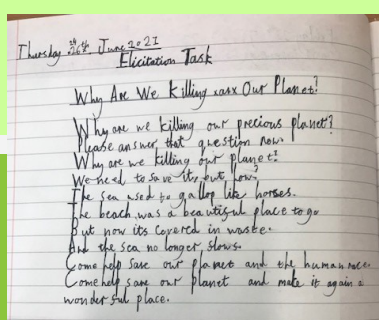 Thursday 24th June 2021
Elicitation Task
Why Are We Killing Our Planet?
Why are we killing our precious planet?
Please answer that question now.
Why are we killing our planet?
We need to save it, but how?
The sea used to gallop like horses.
The beach was a beautiful place to go
But now its covered in waste.
And the sea no longer flows.
Come help save our planet and the human race.
Come help save our planet and make it again a
wonderful place.